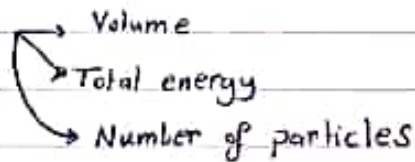 Volume
Total energy
Number of particles